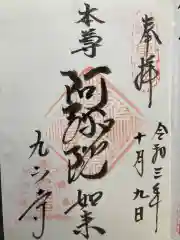 奉拝
令和三年
十月九日
本尊
阿弥陀如来